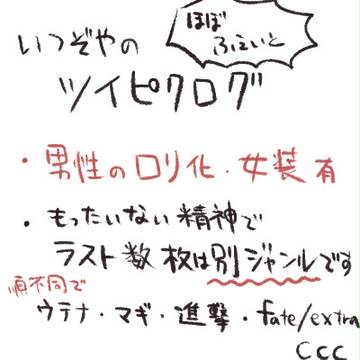 いつぞやの
ほぼ
ふぇいと
ツイピクログ
・男性のロリ化・女装有
・もったいない精神で
ラスト数枚は別ジャンルです
順不同で
ウテナ・マギ・進撃・fate/extra
CCC